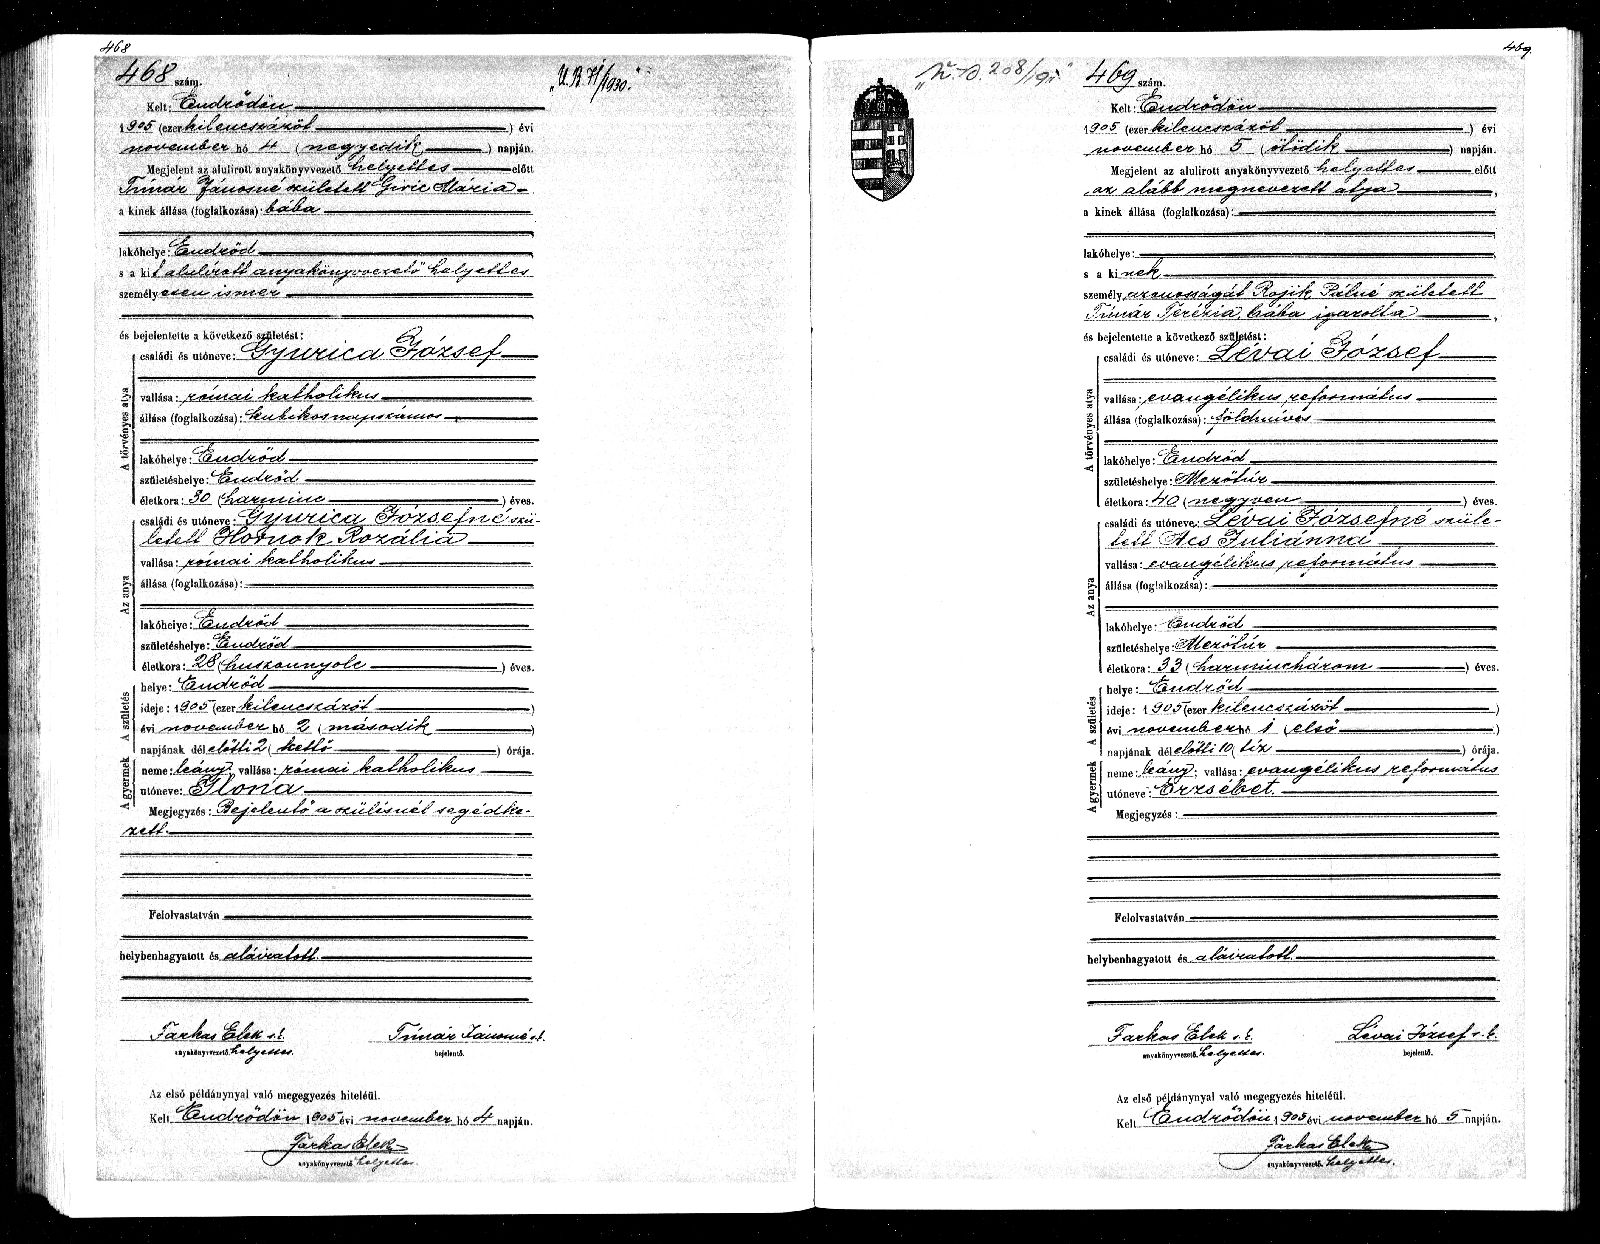 468
468 szám.
"U. B. 71/1930."
Kelt: Endrődön
1905 (ezer kilencszázöt) évi
november hó 4 (negyedik) napján.
Megjelent az alulirott anyakönyvvezető helyettes előtt
Tímár Jánosné született Giric Mária
a kinek állása (foglalkozása): bába
lakóhelye: Endrőd
s a kit alulírott anyakönyvvezető helyettes
személyesen ismer
és bejelentette a következő születést:
A törvényes atya
családi és utóneve: Gyurica József
vallása: római katholikus
állása (foglalkozása): kubikos napszámos
lakóhelye: Endrőd
születéshelye: Endrőd
életkora: 30 (harminc) éves.
Az anya
családi és utóneve: Gyurica Józsefné szü-
letett Hornok Rozália
vallása: római katholikus
állása (foglalkozása):
lakóhelye: Endrőd
születéshelye: Endrőd
életkora: 28 (huszonnyolc) éves.
A születés
helye: Endrőd
ideje: 1905 (ezer kilencszázöt)
évi november hó 2 (második)
napjának dél előtti 2 (kettő) órája.
A gyermek
neme: leány; vallása: római katholikus
utóneve: Ilona
Megjegyzés: Bejelentő a szülésnél segédke-
zett.
Felolvastatván
helybenhagyatott és aláiratott.
Farkas Elek s.k. Tímár Jánosné s.k.
anyakönyvvezető helyettes. bejelentő.
Az első példánynyal való megegyezés hiteléül.
Kelt Endrődön 1905 évi november hó 4 napján.
Farkas Elek
anyakönyvvezető helyettes.
469
469 szám.
208/19
Kelt: Endrődön
1905 (ezer kilencszázöt) évi
november hó 5 (ötödik) napján.
Megjelent az alulirott anyakönyvvezető helyettes előtt
az alább megnevezett atya,
a kinek állása (foglalkozása):
lakóhelye:
s a kinek
személyazonosságát Rojik Pálné született
Tímár Terézia bába igazolta,
és bejelentette a következő születést:
A törvényes atya
családi és utóneve: Lévai József
vallása: evangélikus református
állása (foglalkozása): földmíves
lakóhelye: Endrőd
születéshelye: Mezőtúr
életkora: 40 (negyven) éves.
Az anya
családi és utóneve: Lévai Józsefné szüle-
tett Acs Juliánna
vallása: evangélikus református
állása (foglalkozása):
lakóhelye: Endrőd
születéshelye: Mezőtúr
életkora: 33 (harminchárom) éves.
A születés
helye: Endrőd
ideje: 1905 (ezer kilencszázöt)
évi november hó 1 (első)
napjának dél előtti 10 (tíz) órája.
A gyermek
neme: leány; vallása: evangélikus református
utóneve: Erzsébet.
Megjegyzés:
Felolvastatván
helybenhagyatott és aláiratott.
Farkas Elek s.k. Lévai József s.k.
anyakönyvvezető helyettes. bejelentő.
Az első példánynyal való megegyezés hiteléül.
Kelt Endrődön 1905 évi november hó 5 napján.
Farkas Elek
anyakönyvvezető helyettes.